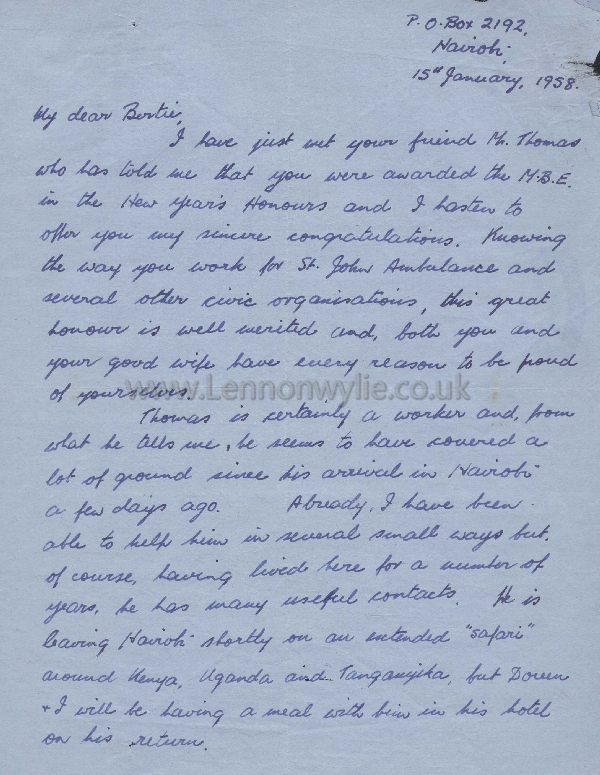 P.O. Box 2192,
Nairobi.
15th January, 1958.
My dear Bertie,
I have just met your friend Mr. Thomas
who has told me that you were awarded the M.B.E.
in the New Year's Honours and I hasten to
offer you my sincere congratulations. Knowing
the way you work for St. John Ambulance and
several other civic organisations, this great
honour is well merited and, both you and
your good wife have every reason to be proud
of yourselves.
www.Lennonwylie.co.uk
Thomas is certainly a worker and, from
what he tells me, he seems to have covered a
lot of ground since his arrival in Nairobi
a few days ago. Already, I have been
able to help him in several small ways but,
of course, having lived here for a number of
years, he has many useful contacts. He is
leaving Nairobi shortly on an extended "safari"
around Kenya, Uganda and Tanganyika, but Doreen
+ I will be having a meal with him in his hotel
on his return.